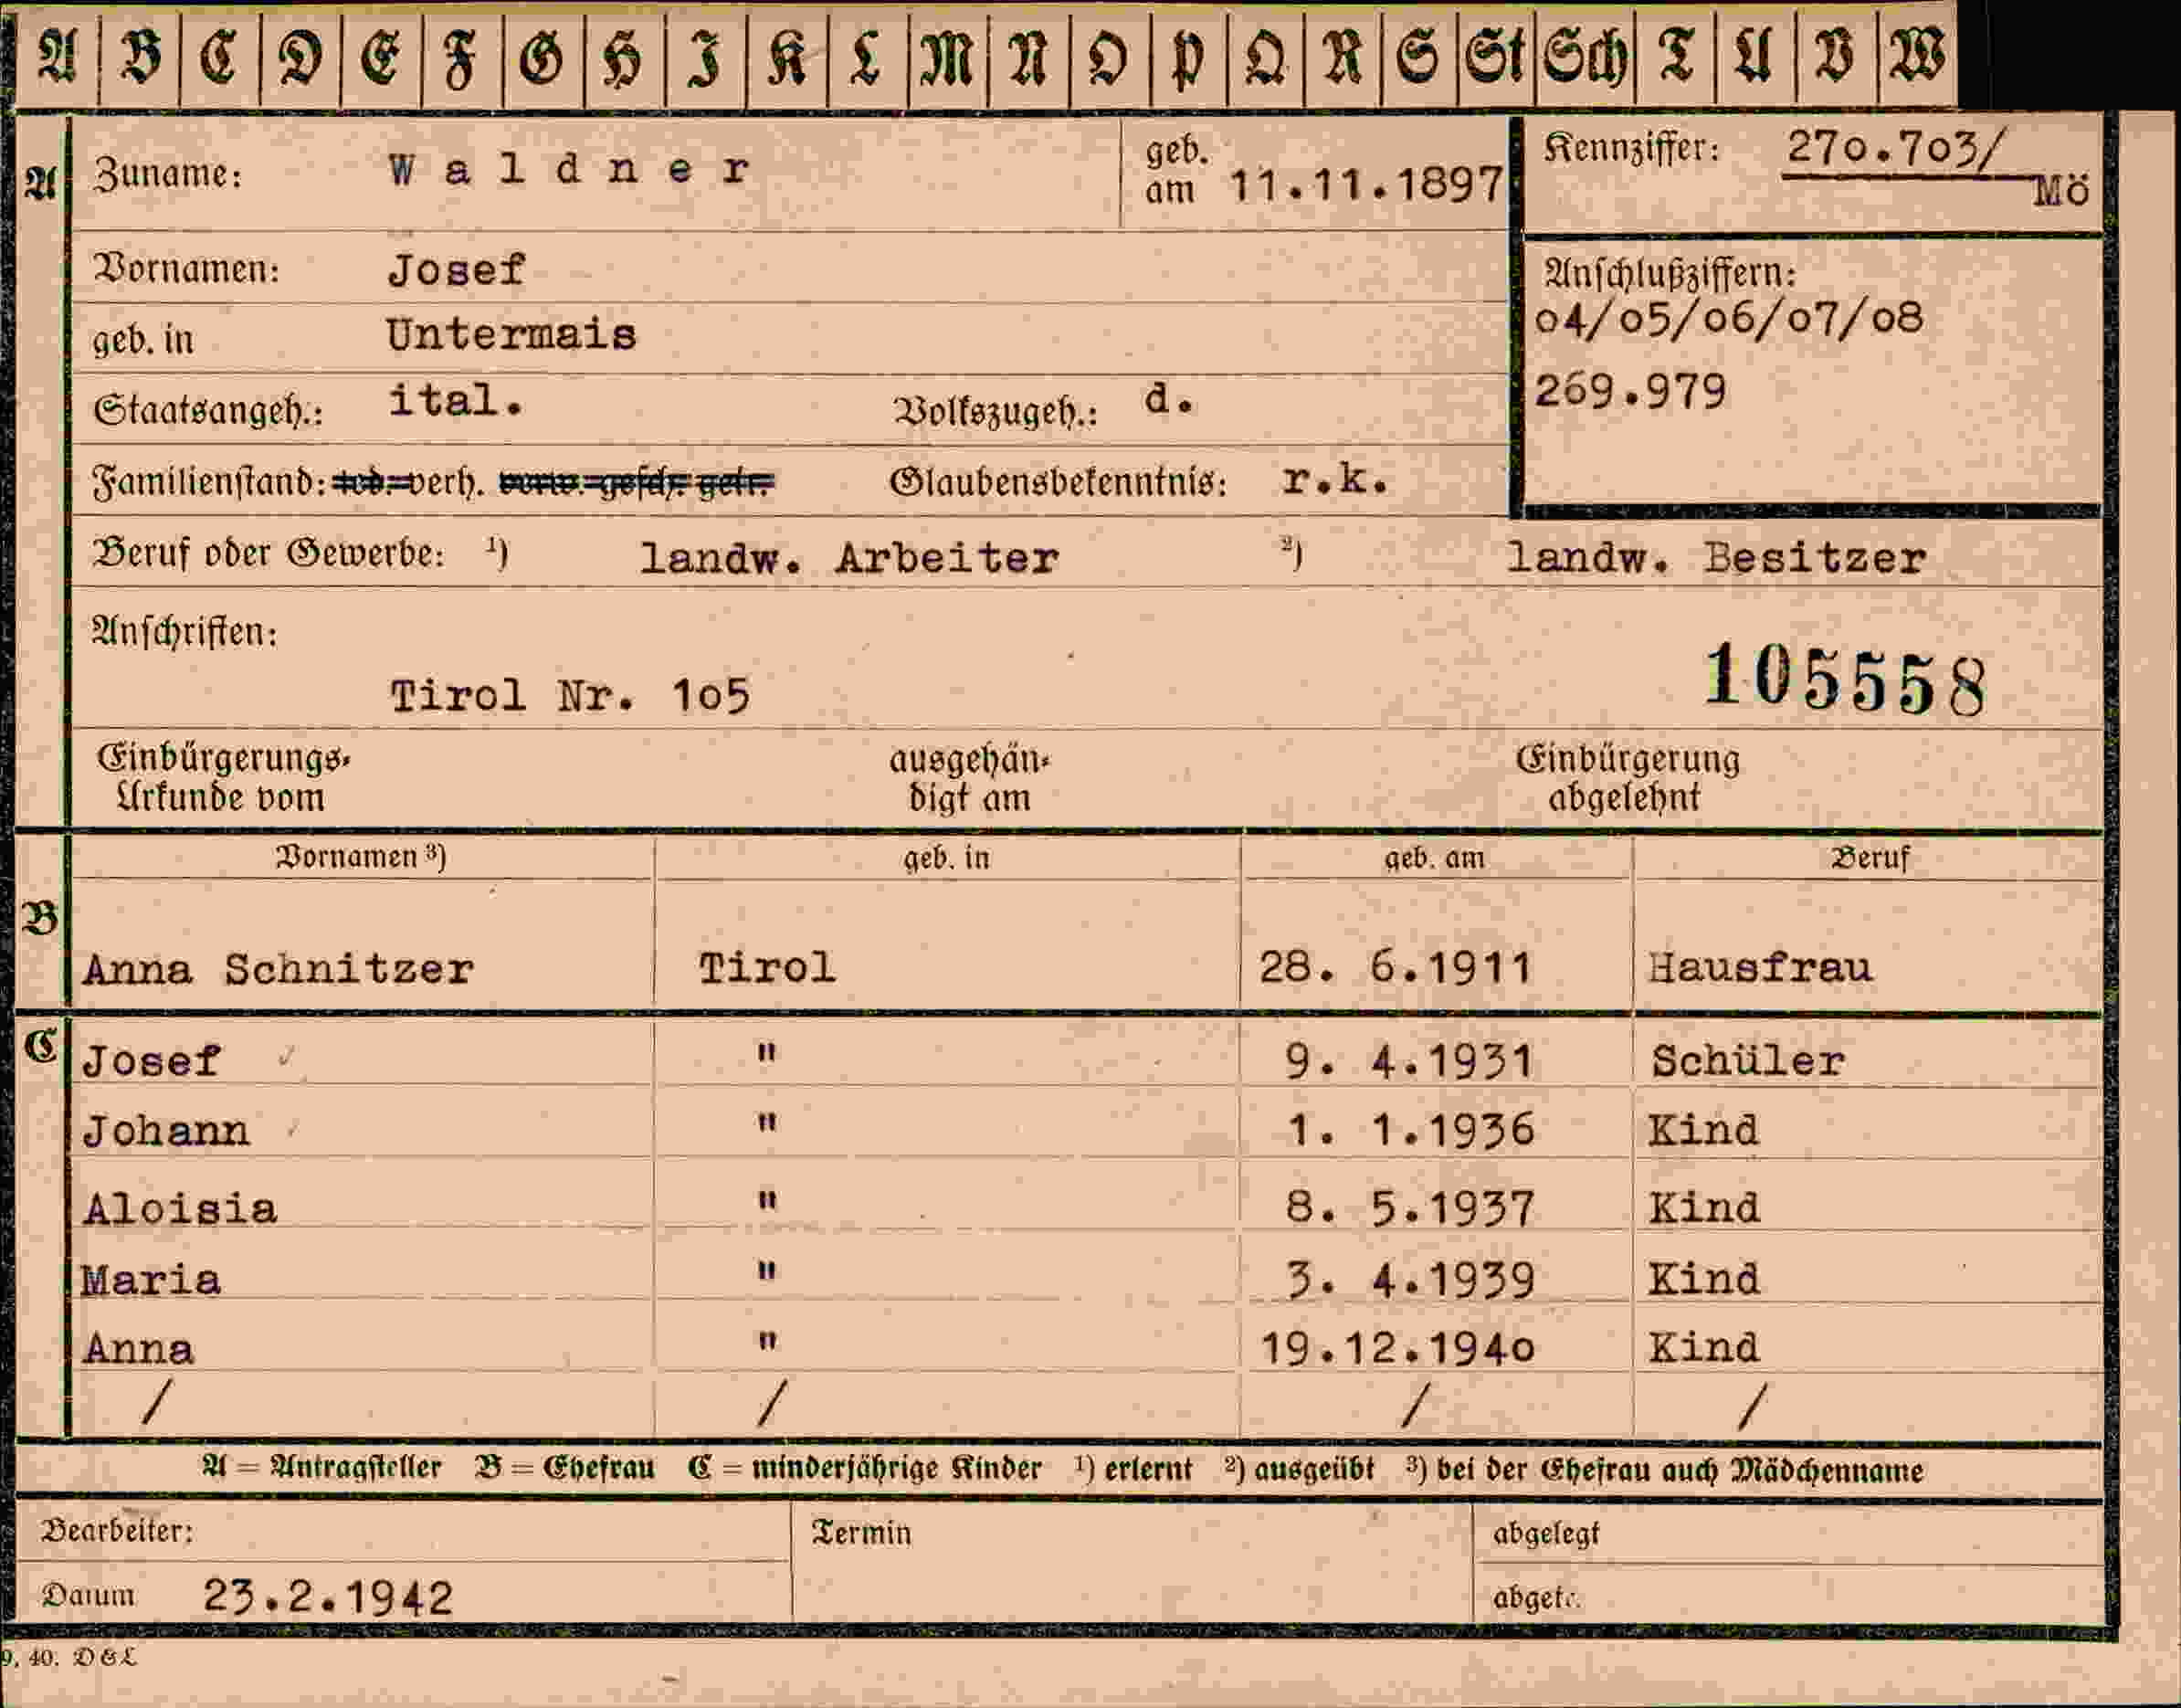 A B C D E F G H I K L M N O P Q R S St Sch T U V W
A Zuname: Waldner geb. am 11.11.1897 Kennziffer: 270.703/ Mö
Vornamen: Josef Anschlußziffern:
geb. in Untermais o4/o5/o6/o7/o8
Staatsangeh.: ital. Volkszugeh.: d. 269.979
Familienstand: led. verh. verw. gesch. getr. Glaubensbekenntnis: r.k.
Beruf oder Gewerbe: ¹) landw. Arbeiter ²) landw. Besitzer
Anschriften:
Tirol Nr. 1o5 105558
Einbürgerungs- ausgehän- Einbürgerung
Urkunde vom digt am abgelehnt
Vornamen ³) geb. in geb. am Beruf
B
Anna Schnitzer Tirol 28. 6.1911 Hausfrau
C Josef " 9. 4.1931 Schüler
Johann " 1. 1.1936 Kind
Aloisia " 8. 5.1937 Kind
Maria " 3. 4.1939 Kind
Anna " 19.12.194o Kind
/ / / /
A = Antragsteller B = Ehefrau C = minderjährige Kinder ¹) erlernt ²) ausgeübt ³) bei der Ehefrau auch Mädchenname
Bearbeiter: Termin abgelegt
Datum 23.2.1942 abgetr.
9. 40. D&L